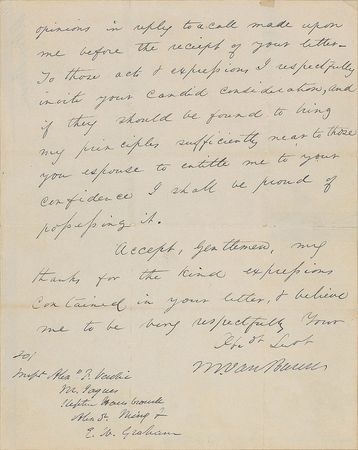 opinions in reply to a call made upon
me before the receipt of your letter—
To those acts & expressions I respectfully
invite your candid consideration, and
if they should be found to bring
my principles sufficiently near to those
you espouse to entitle me to your
confidence I shall be proud of
possessing it.
Accept, Gentlemen, my
thanks for the kind expressions
contained in your letter, & believe
me to be very respectfully Your
M. Van Buren
To/
Messrs Alexr F. Vache
M. Jaques
Alexr Ming Jr
E. W. Graham